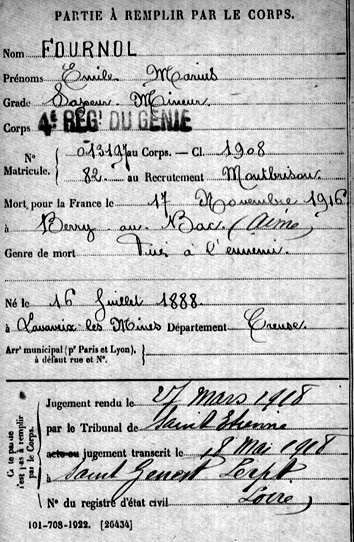 PARTIE À REMPLIR PAR LE CORPS.
Nom FOURNOL
Prénoms Emile Marius
Grade Sapeur-Mineur
Corps 4e REGt DU GÉNIE
N° Matricule. 01319 au Corps. — Cl. 1908
82 au Recrutement Montbrison
Mort pour la France le 17 Novembre 1916
à Berry-au-Bac (Aisne)
Genre de mort Tué à l'ennemi
Né le 16 Juillet 1888
à Lavaveix les Mines Département Creuse
Arrt municipal (pr Paris et Lyon), à défaut rue et N°.
Cette partie n'est pas à remplir par le Corps.
Jugement rendu le 27 mars 1918
par le Tribunal de Saint Etienne
acte ou jugement transcrit le 18 Mai 1918
à Saint Genest Lerpt
Loire
N° du registre d'état civil
101-708-1922. [26434]